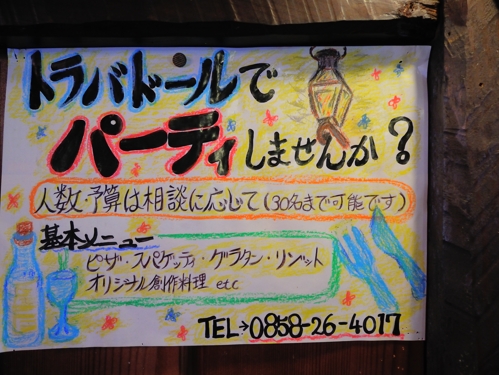 トラバドールで
パーティしませんか?
人数・予算は相談に応じて(30名まで可能です)
基本メニュー
ピザ・スパゲッティ・グラタン・リゾット
オリジナル創作料理 etc
TEL→0858-26-4017